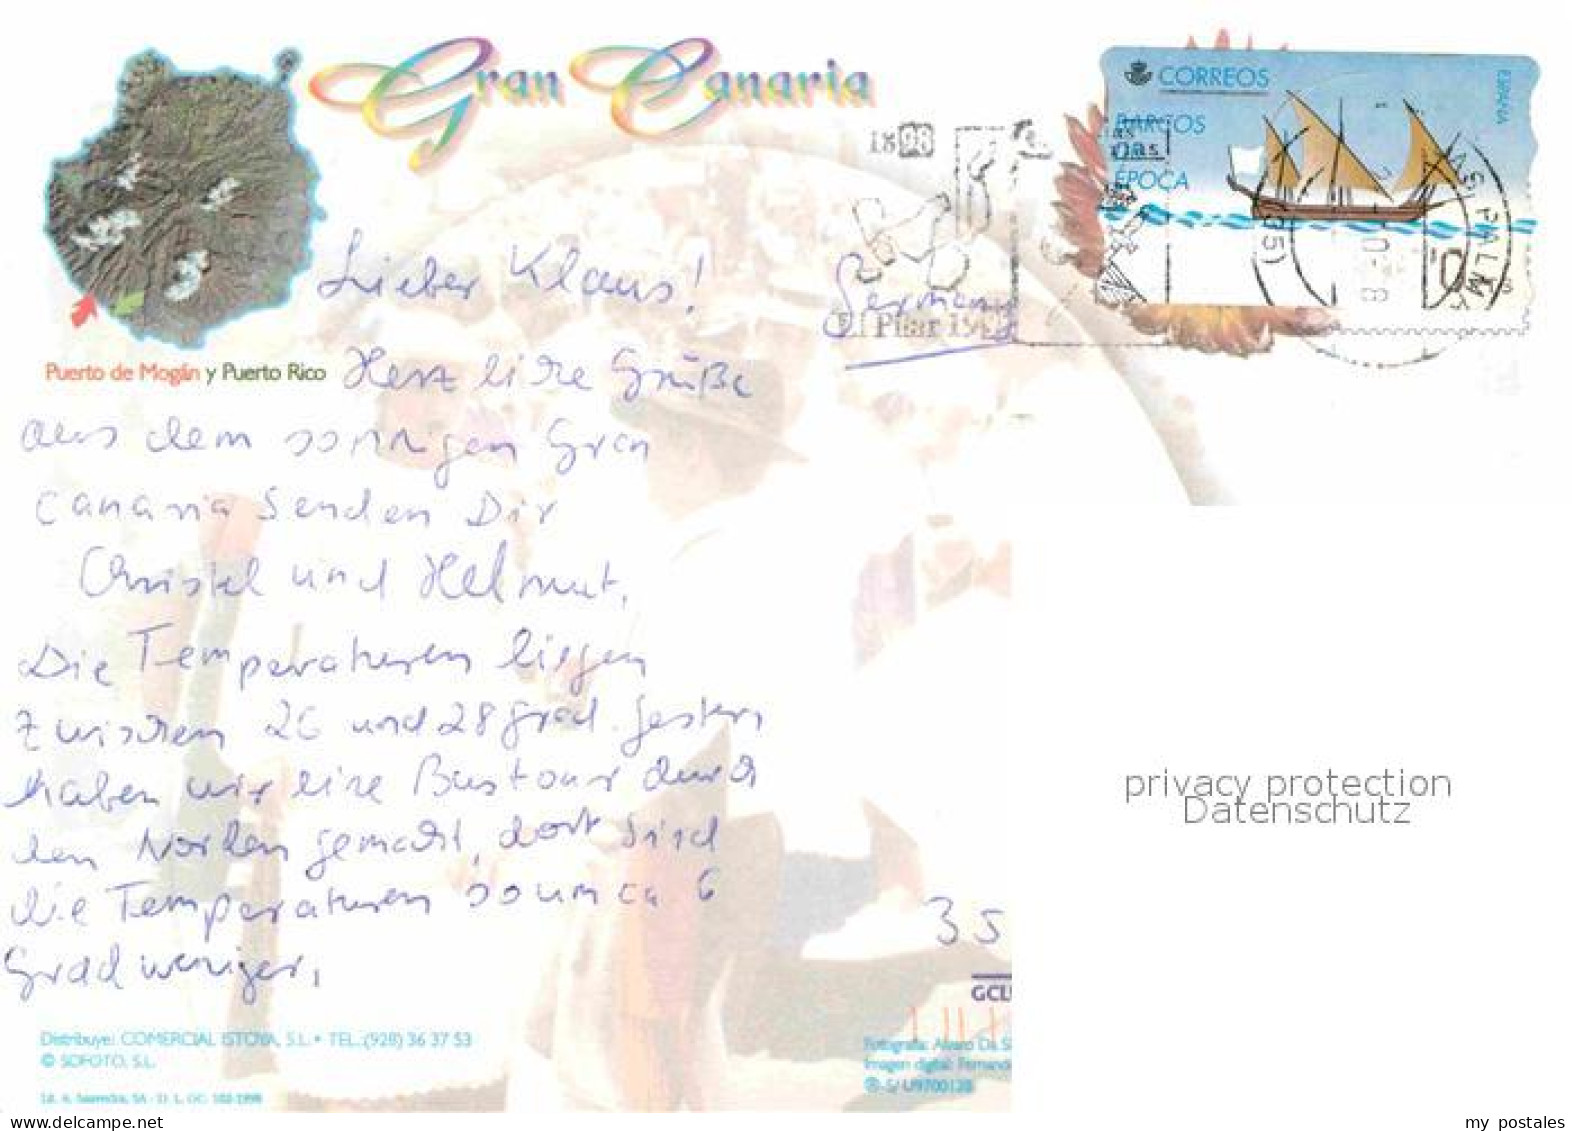 Gran Canaria
CORREOS
ESPAÑA
BARCOS
ÉPOCA
1898
El Pilar
Lieber Klaus!
Germany
Puerto de Mogán y Puerto Rico
Herzliche Grüße
aus dem sonnigen Gran
Canaria senden Dir
Christel und Helmut.
Die Temperaturen liegen
zwischen 26 und 28 Grad. Gestern
haben wir eine Bustour durch
den Norden gemacht, dort sind
die Temperaturen so um ca 6
Grad weniger.
35
GCL
privacy protection
Datenschutz
Distribuye: COMERCIAL ISTOYA, S.L. • TEL.:(928) 36 37 53
© SOFOTO, S.L.
Fotografía: Alvaro Da S
Imagen digital: Fernand
my postales